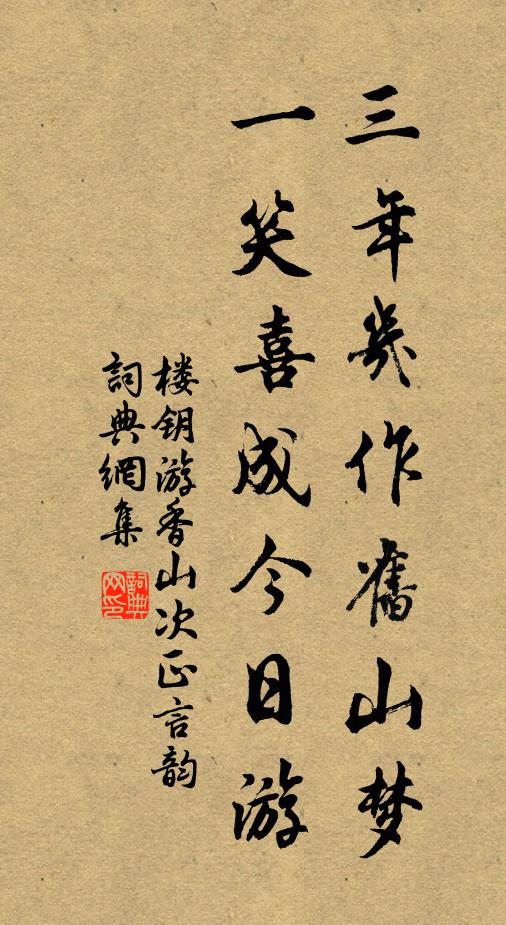 三年几作旧山梦
一笑喜成今日游
楼钥游香山次正言韵
詞典網集
詞典网印